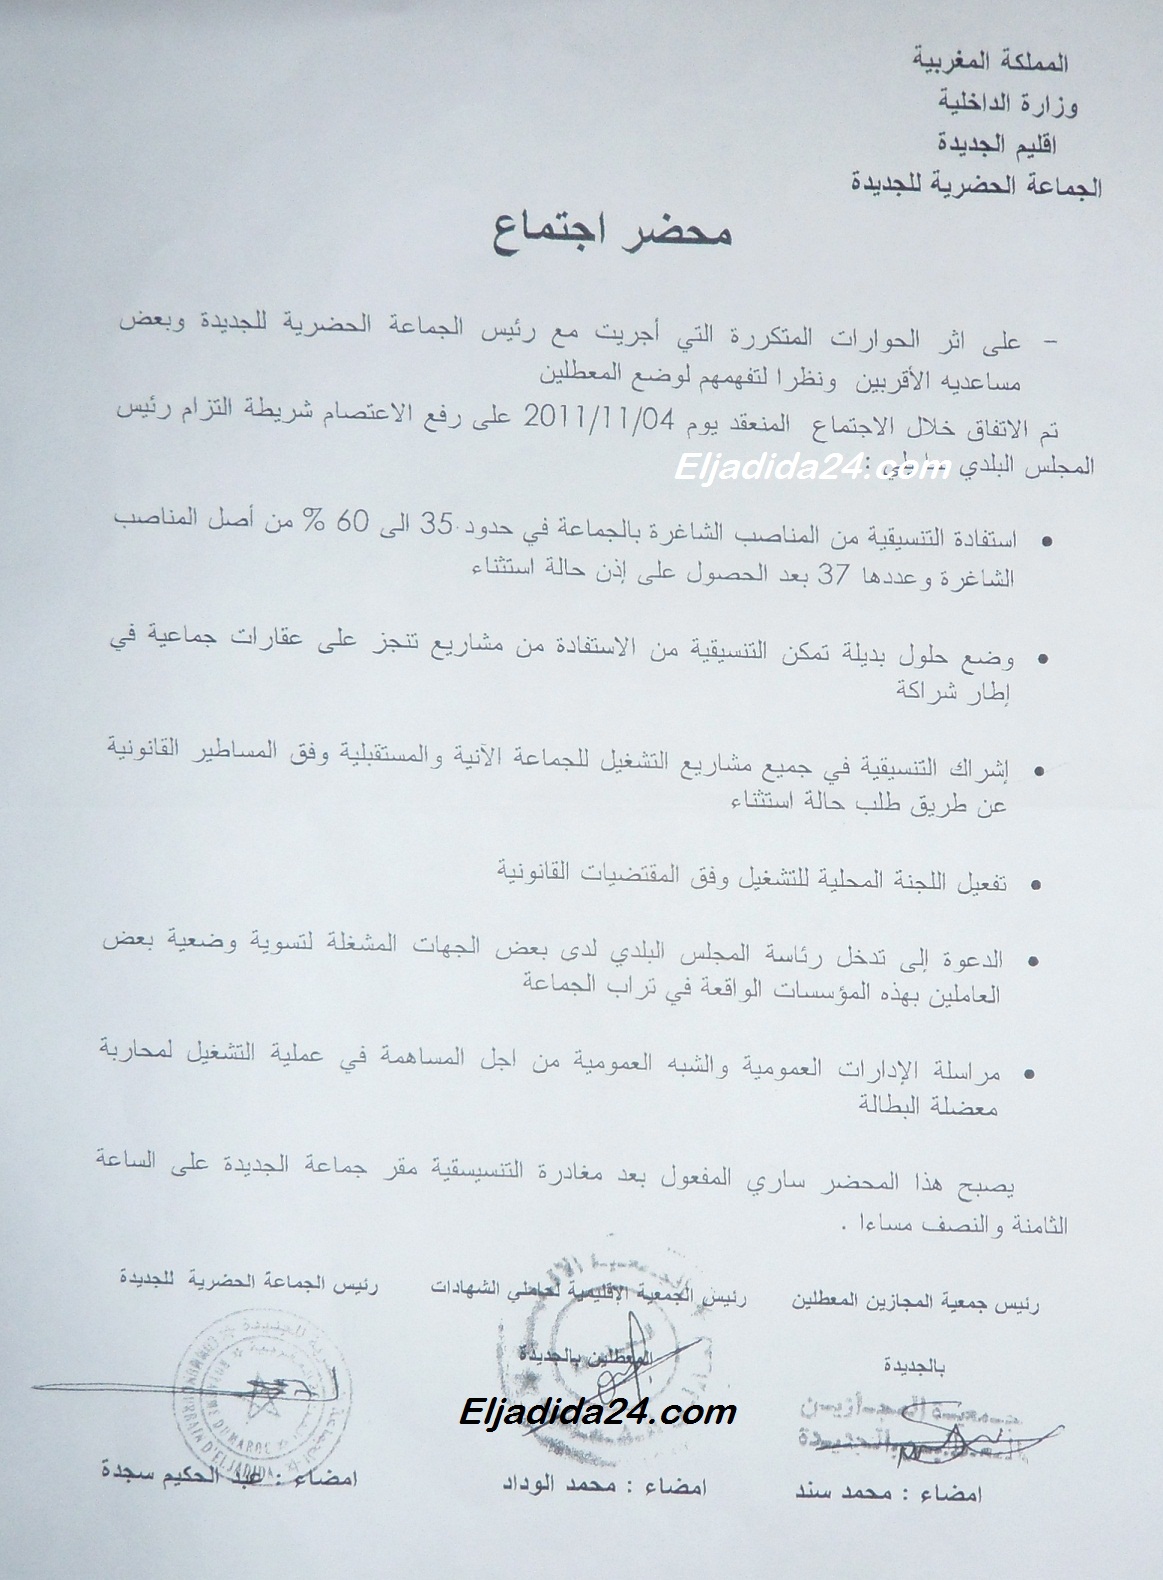 المملكة المغربية
وزارة الداخلية
اقليم الجديدة
الجماعة الحضرية للجديدة
محضر اجتماع
- على اثر الحوارات المتكررة التي أجريت مع رئيس الجماعة الحضرية للجديدة وبعض
مساعديه الأقربين ونظرا لتفهمهم لوضع المعطلين
تم الاتفاق خلال الاجتماع المنعقد يوم 2011/11/04 على رفع الاعتصام شريطة التزام رئيس
المجلس البلدي :
Eljadida24.com
• استفادة التنسيقية من المناصب الشاغرة بالجماعة في حدود 35 الى 60 % من أصل المناصب
الشاغرة وعددها 37 بعد الحصول على إذن حالة استثناء
• وضع حلول بديلة تمكن التنسيقية من الاستفادة من مشاريع تنجز على عقارات جماعية في
إطار شراكة
• إشراك التنسيقية في جميع مشاريع التشغيل للجماعة الآنية والمستقبلية وفق المساطير القانونية
عن طريق طلب حالة استثناء
• تفعيل اللجنة المحلية للتشغيل وفق المقتضيات القانونية
• الدعوة إلى تدخل رئاسة المجلس البلدي لدى بعض الجهات المشغلة لتسوية وضعية بعض
العاملين بهذه المؤسسات الواقعة في تراب الجماعة
• مراسلة الإدارات العمومية والشبه العمومية من اجل المساهمة في عملية التشغيل لمحاربة
معضلة البطالة
يصبح هذا المحضر ساري المفعول بعد مغادرة التنسيسقية مقر جماعة الجديدة على الساعة
الثامنة والنصف مساءا .
رئيس جمعية المجازين المعطلين
بالجديدة
رئيس الجمعية الإقليمية لحاملي الشهادات
المعطلين بالجديدة
رئيس الجماعة الحضرية للجديدة
Eljadida24.com
امضاء : محمد سند
امضاء : محمد الوداد
امضاء : عبد الحكيم سجدة